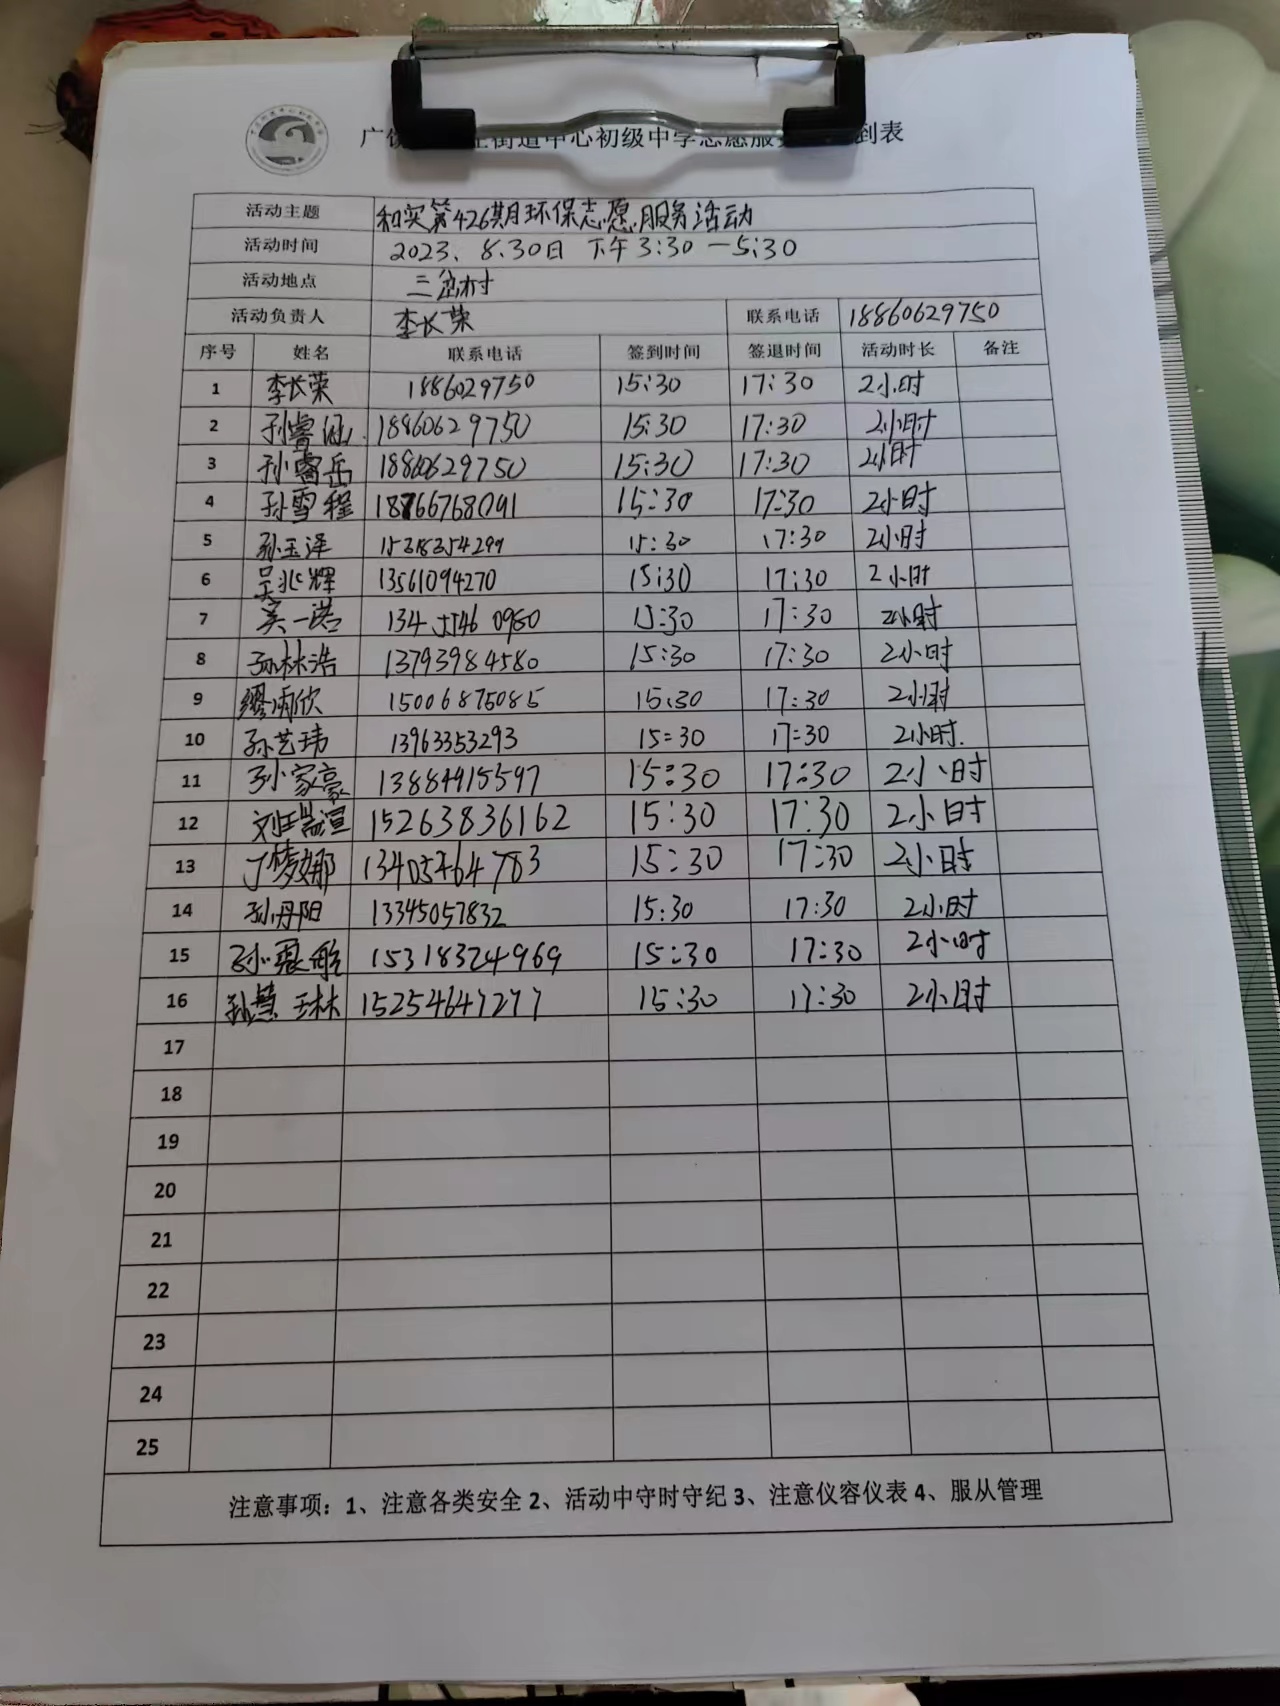 街道中心初级中学志愿服 到表
活动主题 和实第426期环保志愿服务活动
活动时间 2023、8.30日 下午3:30—5:30
活动地点 三岔村
活动负责人 李长荣 联系电话 18860629750
序号 姓名 联系电话 签到时间 签退时间 活动时长 备注
1 李长荣 1886029750 15:30 17:30 2小时
2 孙睿涵 18860629750 15:30 17:30 2小时
3 孙睿岳 18860629750 15:30 17:30 2小时
4 孙雪程 18766768091 15:30 17:30 2小时
5 孙玉泽 15318354299 15:30 17:30 2小时
6 吴兆辉 13561094270 15:30 17:30 2小时
7 吴一诺 134 5546 0980 15:30 17:30 2小时
8 孙林浩 13793984580 15:30 17:30 2小时
9 缪雨欣 15006875085 15:30 17:30 2小时
10 孙艺玮 13963353293 15:30 17:30 2小时.
11 孙家豪 13884915597 15:30 17:30 2小时
12 15263836162 15:30 17:30 2小时
13 丁梦娜 13405464783 15:30 17:30 2小时
14 孙丹阳 13345057832 15:30 17:30 2小时
15 孙 航 15318324969 15:30 17:30 2小时
16 孙慧琳 15254647277 15:30 17:30 2小时
17
18
19
20
21
22
23
24
25
注意事项：1、注意各类安全 2、活动中守时守纪 3、注意仪容仪表 4、服从管理